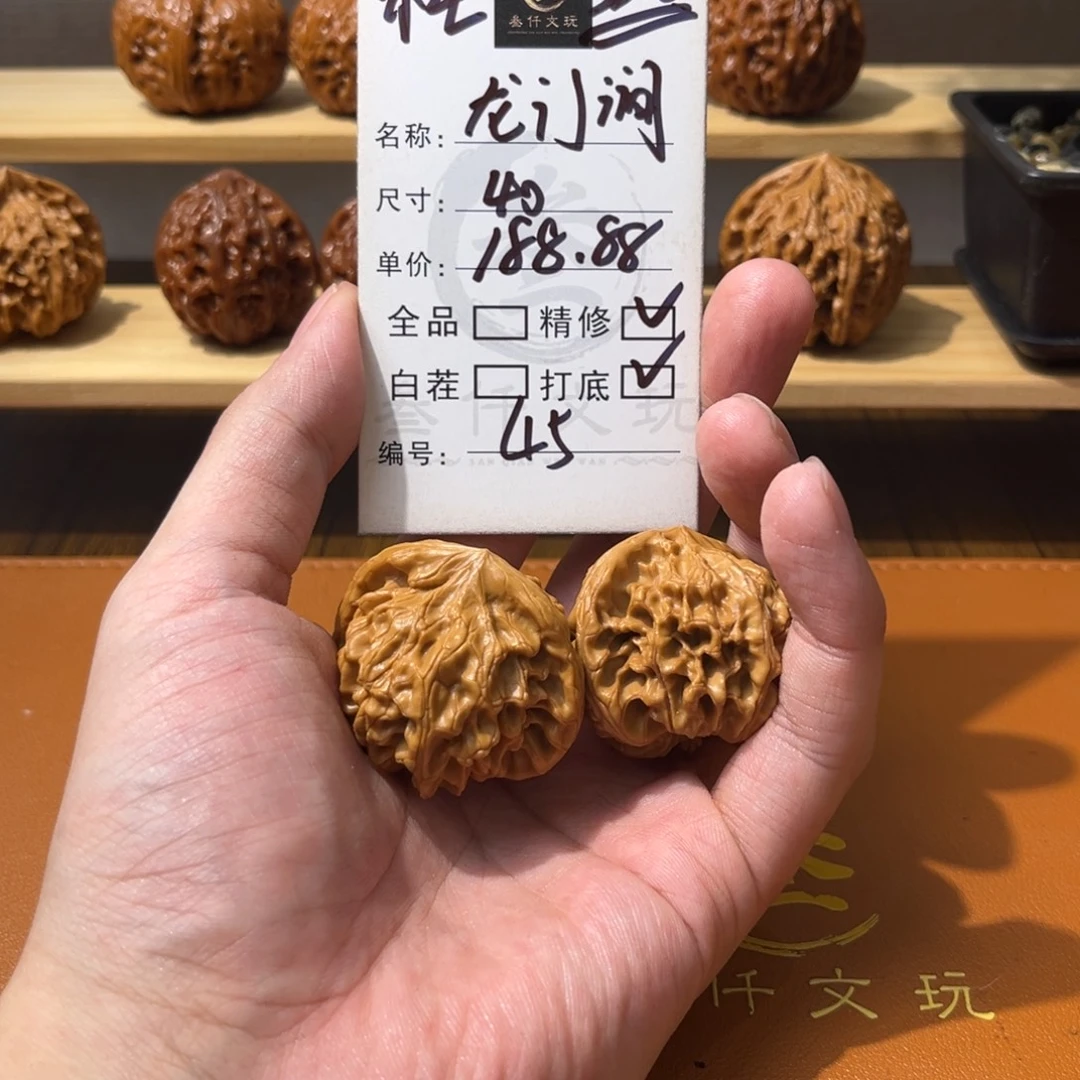 叁仟文玩
名称: 龙门涧
尺寸: 40
单价: 188.88
全品 精修 ✓
白茬 打底 ✓
编号: 45
叁仟文玩
仟文玩